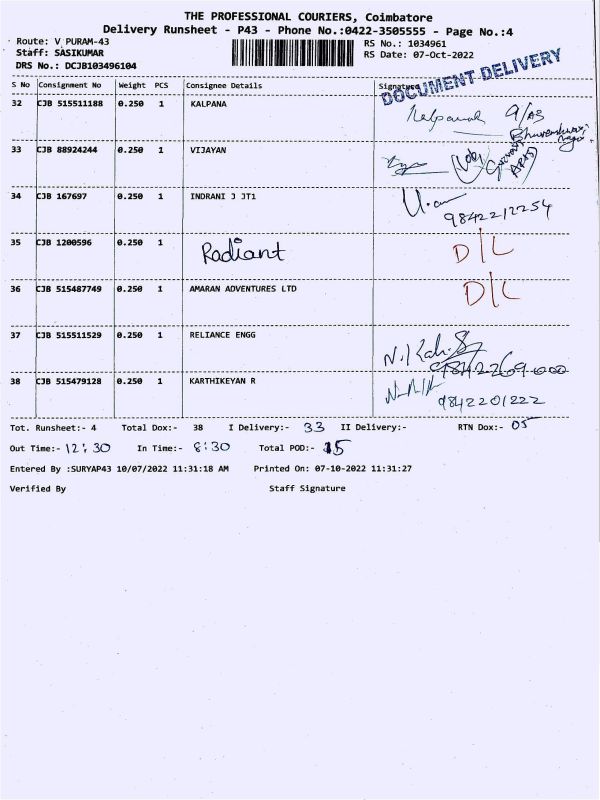 THE PROFESSIONAL COURIERS, Coimbatore
Delivery Runsheet - P43 - Phone No.:0422-3505555 - Page No.:4
Route: V PURAM-43
RS No.: 1034961
Staff: SASIKUMAR
RS Date: 07-Oct-2022
DRS No.: DCJB103496104
DOCUMENT DELIVERY
S No Consignment No Weight PCS Consignee Details Signature
32 CJB 515511188 0.250 1 KALPANA
33 CJB 88924244 0.250 1 VIJAYAN
34 CJB 167697 0.250 1 INDRANI J JT1 9842212254
35 CJB 1200596 0.250 1 Radiant D/L
36 CJB 515487749 0.250 1 AMARAN ADVENTURES LTD D/L
37 CJB 515511529 0.250 1 RELIANCE ENGG
38 CJB 515479128 0.250 1 KARTHIKEYAN R 9842201222
Tot. Runsheet:- 4 Total Dox:- 38 I Delivery:- 33 II Delivery:- RTN Dox:- 05
Out Time:- 12:30 In Time:- 8:30 Total POD:- 15
Entered By :SURYAP43 10/07/2022 11:31:18 AM Printed On: 07-10-2022 11:31:27
Verified By Staff Signature